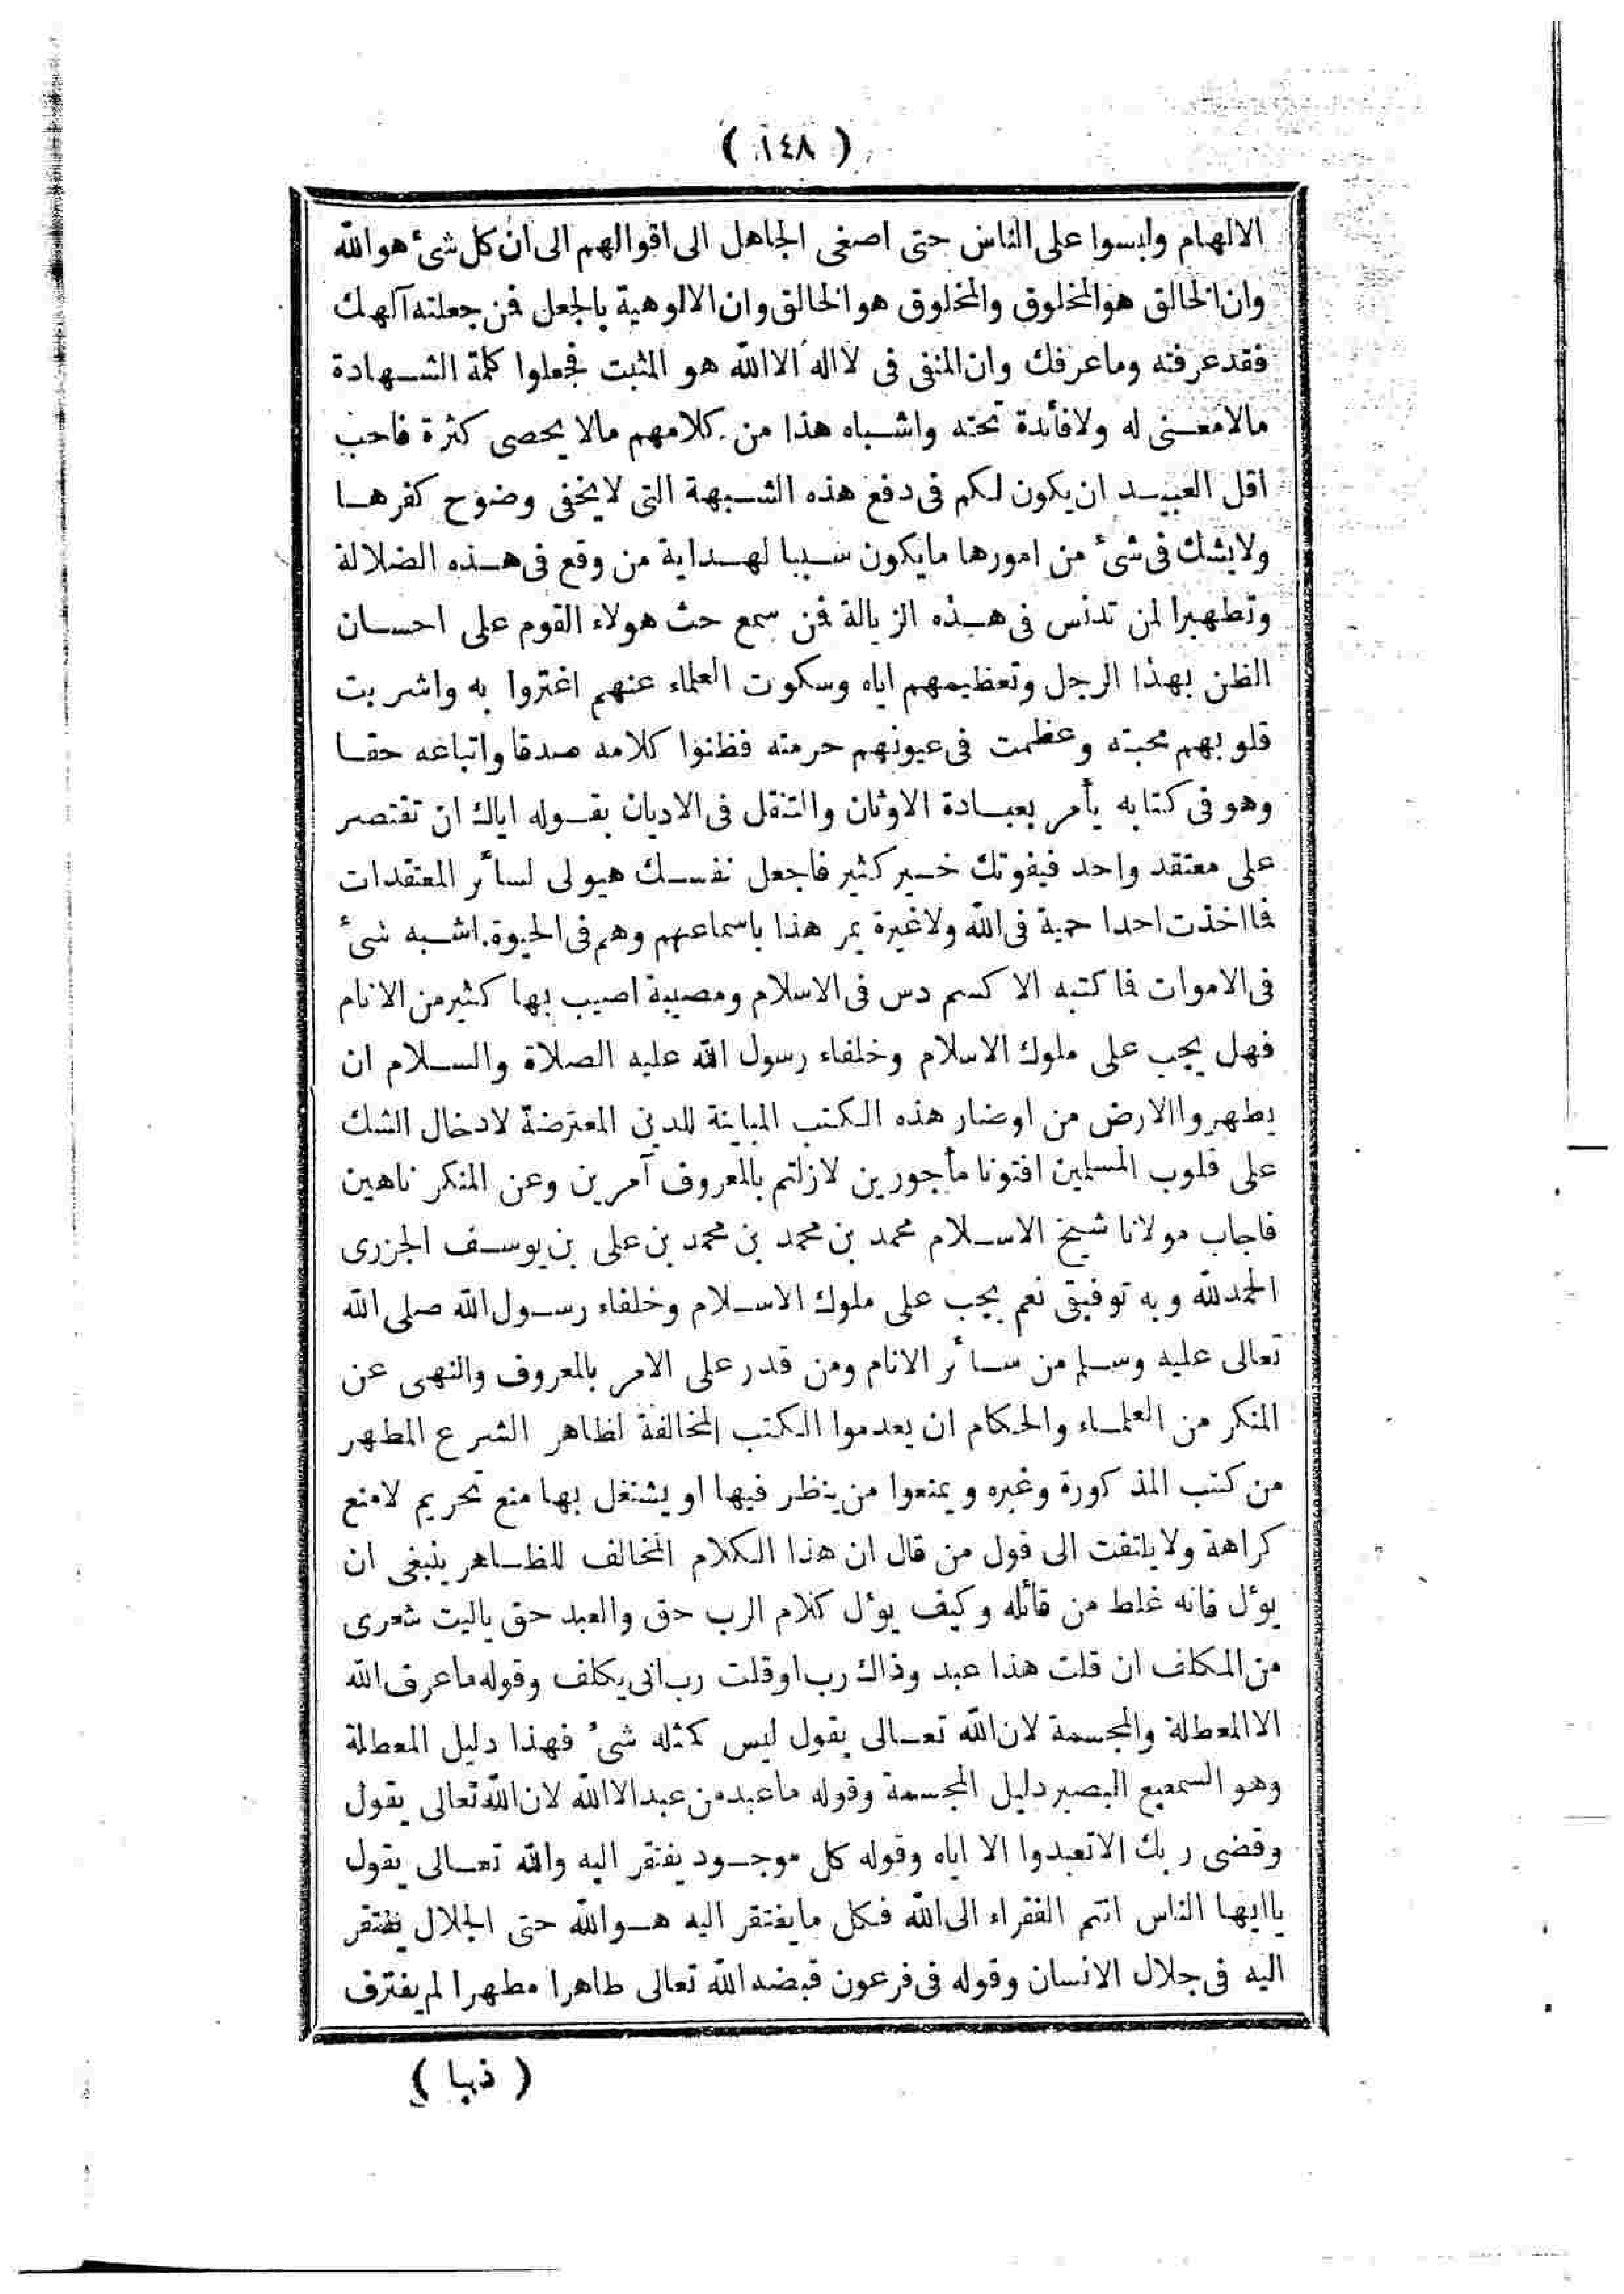 ( ١٤٨ )
الالهام ولبسوا على الناس حتى اصغى الجاهل الى اقوالهم الى ان كل شئ هو الله
وان الخالق هو المخلوق والمخلوق هو الخالق وان الالوهية بالجعل فمن جعلته آلهك
فقد عرفته وما عرفك وان المنفى فى لا اله الا الله هو المثبت فجعلوا كلمة الشهادة
مالا معنى له ولا فأئدة تحته واشباه هذا من كلامهم مالا يحصى كثرة فاحب
اقل العبيد ان يكون لكم فى دفع هذه الشبهة التى لا يخفى وضوح كفرها
ولا يشك فى شئ من امورها ما يكون سببا لهداية من وقع فى هذه الضلالة
وتطهيرا لمن تدنس فى هذه الزبالة فمن سمع حث هولاء القوم على احسان
الظن بهذا الرجل وتعظيمهم اياه وسكوت العلماء عنهم اغتروا به واشربت
قلوبهم محبته وعظمت فى عيونهم حرمته فظنوا كلامه صدقا واتباعه حقا
وهو فى كتابه يأمر بعبادة الاوثان والتنقل فى الاديان بقوله اياك ان تقتصر
على معتقد واحد فيفوتك خير كثير فاجعل نفسك هيولى لسأئر المعتقدات
فما اخذت احدا حمية فى الله ولا غيرة يمر هذا باسماعهم وهم فى الحيوة اشبه شئ
فى الاموات فما كتبه الا كسم دس فى الاسلام ومصيبة اصيب بها كثير من الانام
فهل يجب على ملوك الاسلام وخلفاء رسول الله عليه الصلاة والسلام ان
يطهروا الارض من اوضار هذه الكتب المباينة للدين المعترضة لادخال الشك
على قلوب المسلمين افتونا مأجورين لازلتم بالمعروف آمرين وعن المنكر ناهين
فاجاب مولانا شيخ الاسلام محمد بن محمد بن محمد بن على بن يوسف الجزرى
الحمد لله وبه توفيقى نعم يجب على ملوك الاسلام وخلفاء رسول الله صلى الله
تعالى عليه وسلم من سأئر الانام ومن قدر على الامر بالمعروف والنهى عن
المنكر من العلماء والحكام ان يعدموا الكتب المخالفة لظاهر الشرع المطهر
من كتب المذكورة وغيره ويمنعوا من ينظر فيها او يشتغل بها منع تحريم لا منع
كراهة ولا يلتفت الى قول من قال ان هذا الكلام المخالف للظاهر ينبغى ان
يوءل فانه غلط من قأئله وكيف يوءل كلام الرب حق والعبد حق ياليت شعرى
من المكلف ان قلت هذا عبد وذاك رب او قلت رب انى يكلف وقوله ما عرف الله
الا المعطلة والمجسمة لان الله تعالى يقول ليس كمثله شئ فهذا دليل المعطلة
وهو السميع البصير دليل المجسمة وقوله ما عبد من عبد الا الله لان الله تعالى يقول
وقضى ربك الا تعبدوا الا اياه وقوله كل موجود يفتقر اليه والله تعالى يقول
يا ايها الناس انتم الفقراء الى الله فكل ما يفتقر اليه هو الله حتى الجلال يفتقر
اليه فى جلال الانسان وقوله فى فرعون قبضه الله تعالى طاهرا مطهرا لم يقترف
( ذنبا )